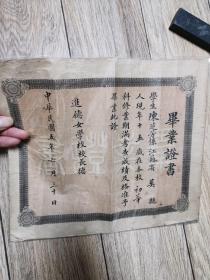 畢業證書
學生陳係江蘇省吳縣
人現年十五歲在本校初等
科修業期滿考查成績及格准予
畢業此證
進德女學校校長楊
中華民國五年月日